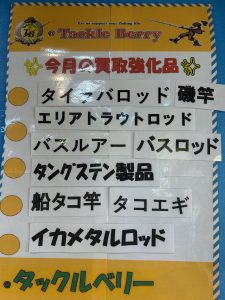 Let us support your fishing life.
@ Tackle Berry
今月の買取強化品
タイラバロッド 磯竿
エリアトラウトロッド
バスルアー バスロッド
タングステン製品
船タコ竿 タコエギ
イカメタルロッド
タックルベリー